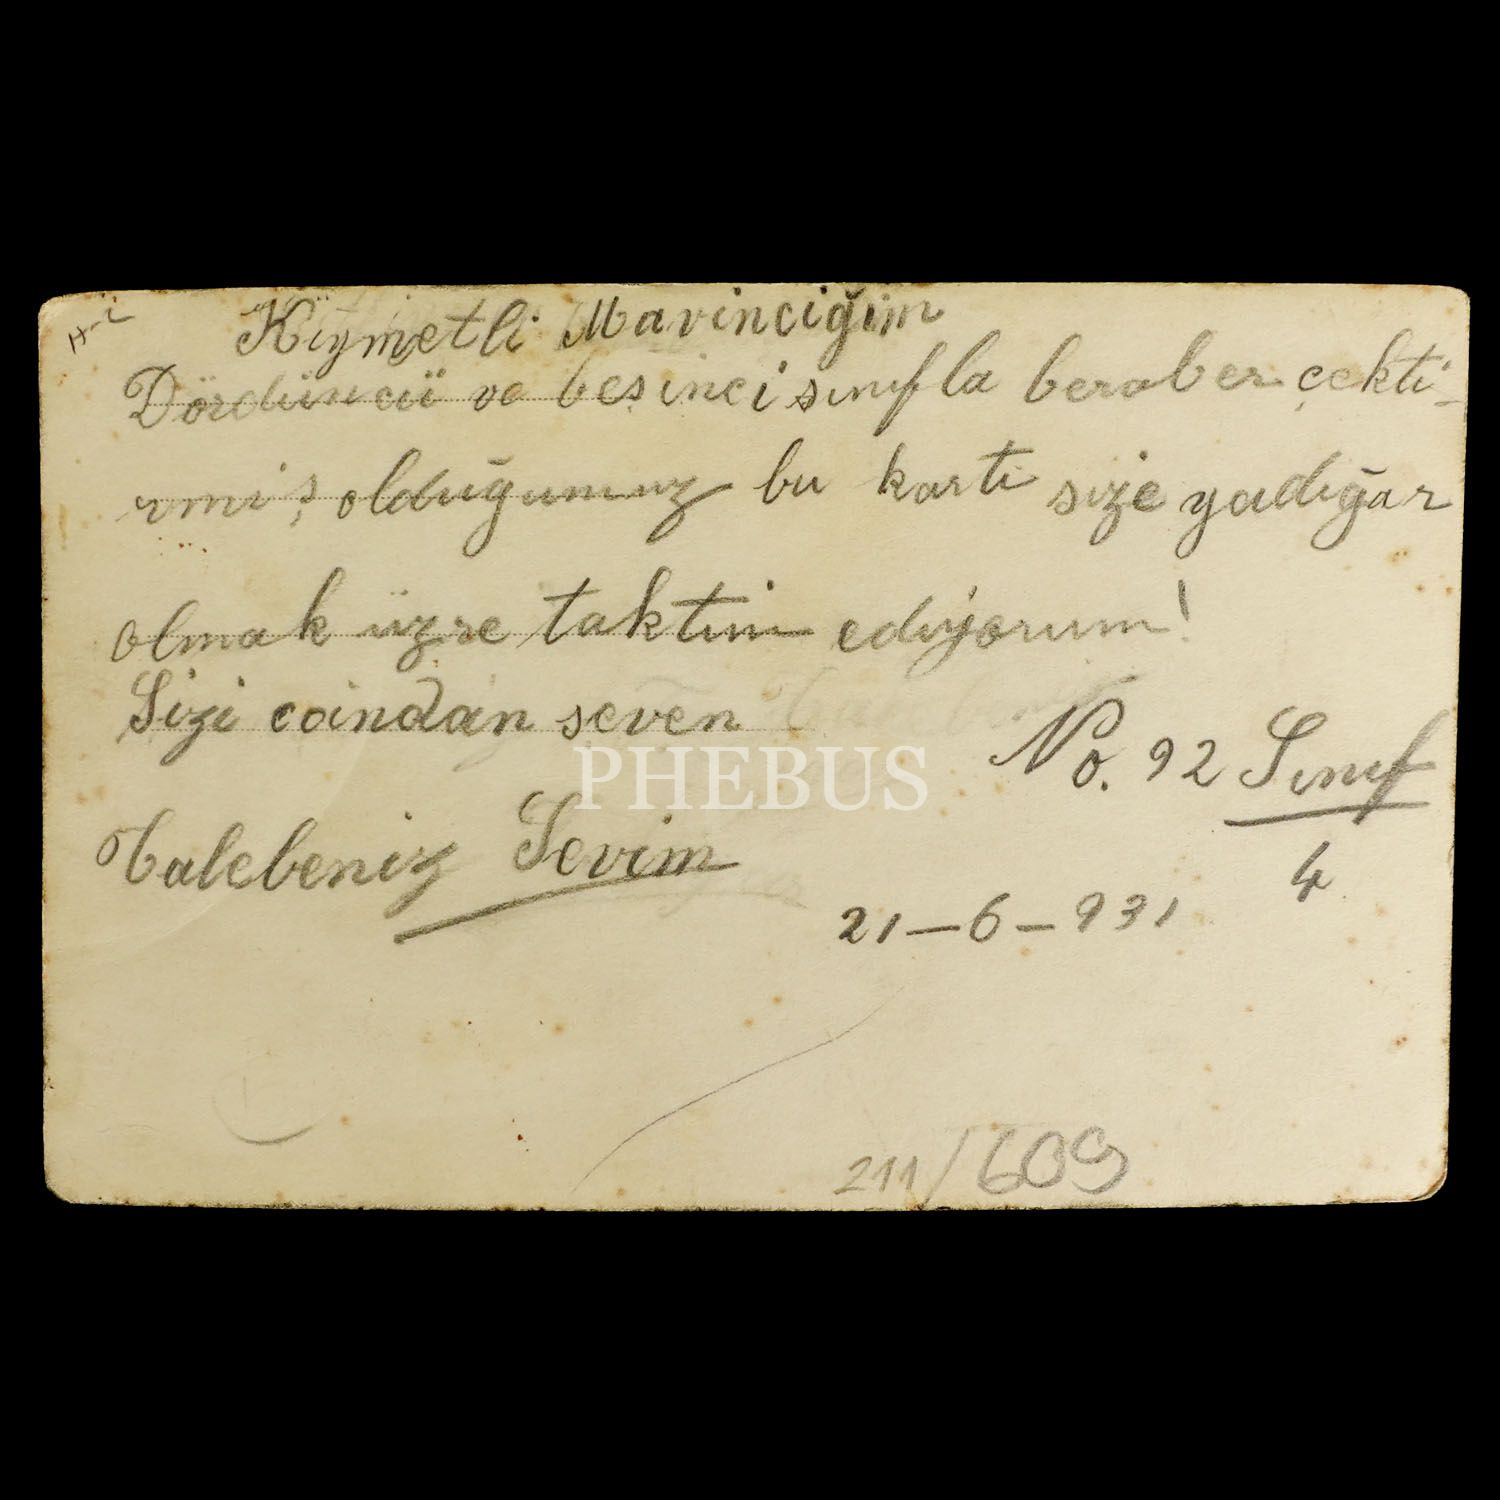 H-2
Kiymetli Mavinciğim
Dördüncü ve beşinci sınıfla beraber çekti-
rmiş olduğumuz bu kartı size yadiğar
olmak üzre taktim ediyorum!
Sizi candan seven
No. 92 Sınıf
4
Talebeniz Sevim
21-6-931
211/609
PHEBUS